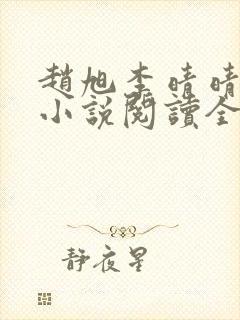 趙旭李晴晴
小說閱讀全
靜夜星